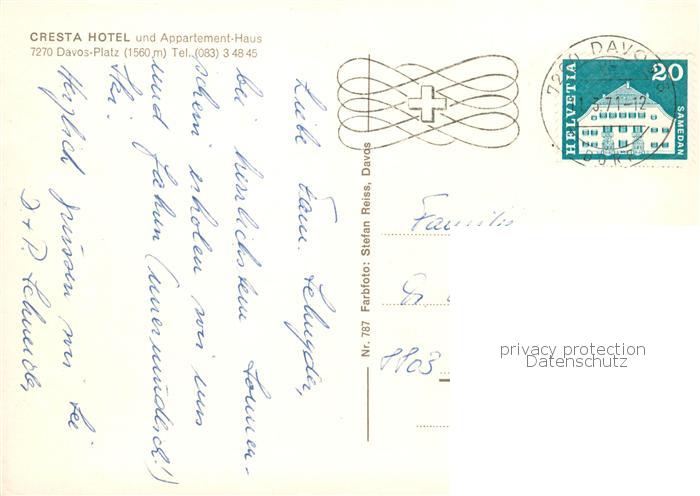 CRESTA HOTEL und Appartement-Haus
7270 Davos-Platz (1560 m) Tel. (083) 3 48 45
Liebe Fam.
bei herrlichstem Sonnen-
schein erholen wir uns
und fahren (unermüdlich!)
Ski.
Herzlich grüssen wir Sie
D. + P.
Nr. 787 Farbfoto: Stefan Reiss, Davos
7270 DAVOS
1.3.71-12
HELVETIA
20
SAMEDAN
Familie
privacy protection
Datenschutz